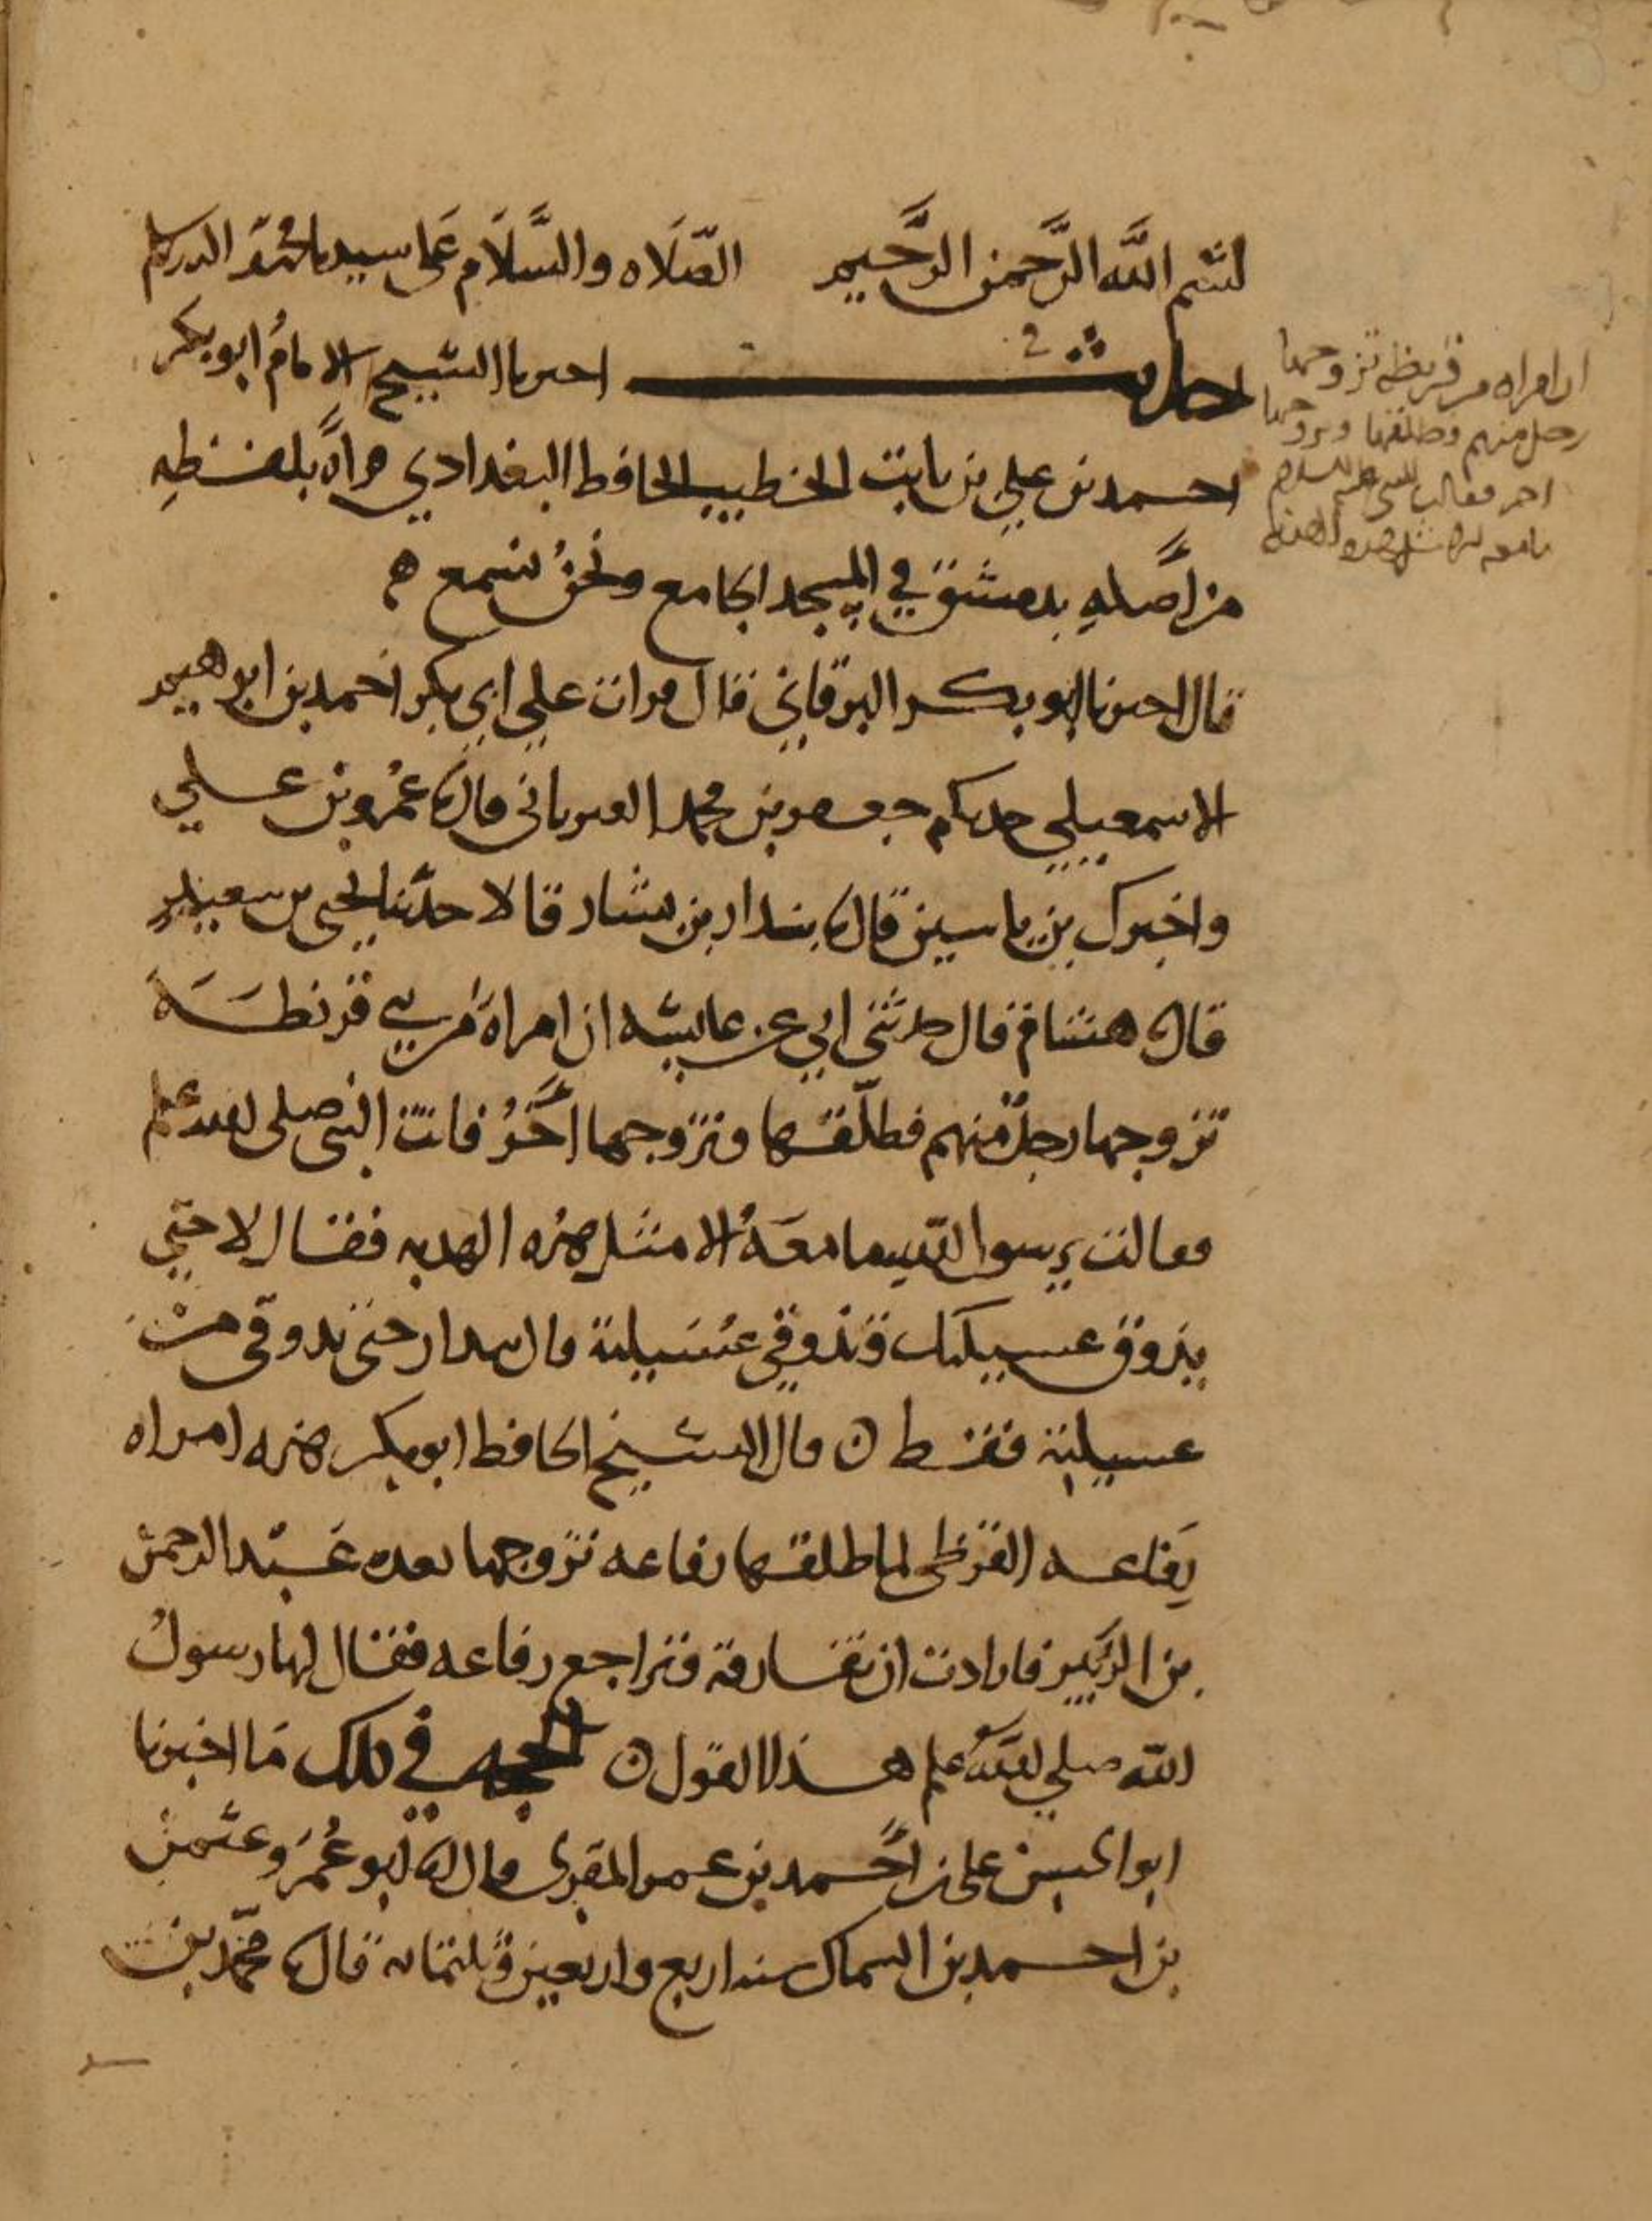 بسم الله الرحمن الرحيم الصلاه والسلام على سيدنا محمد
حديث اخبرنا الشيخ الامام ابو بكر
احمد بن علي بن ثابت الخطيب الحافظ البغدادي قراءة بلفظه
من أصله بدمشق في المسجد الجامع ونحن نسمع ه
قال اخبرنا ابو بكر البرقاني قال قرات على ابي بكر احمد بن ابراهيم
الاسمعيلي حدثكم جعفر بن محمد الفريابي قال نا عمرو بن علي
واخبرك بن ياسين قال نا بندار بن بشار قالا حدثنا يحيى بن سعيد
قال نا هشام قال حدثني ابي عن عايشه ان امراة من بني قريظة
تزوجها رجل منهم فطلقها وتزوجها آخر فاتت النبي صلى الله علم
فقالت يرسول الله ما معه الا مثل هذه الهدبه فقال لا حتي
يذوق عسيلتك وتذوقي عسيلته قال بندار حتى تذوقي من
عسيلته فقط ن قال الشيخ الحافظ ابو بكر هذه امراه
رفاعه القرظي لما طلقها رفاعه تزوجها بعده عبد الرحمن
بن الزبير فارادت ان تفارقه وتراجع رفاعه فقال لها رسول
الله صلي الله علم هذا القول ن الحجه في ذلك ما اخبرنا
ابو الحسن علي بن احمد بن عمر المقرى قال نا ابو عمرو عثمن
بن احمد بن السماك سنه اربع واربعين وثلثمائه قال نا محمد بن
ان امراه من قريظه تزوجها
رجل منهم وطلقها وتزوجها
اخر فقالت للنبي عليه السلام
ما معه الا مثل هذه الهدبه